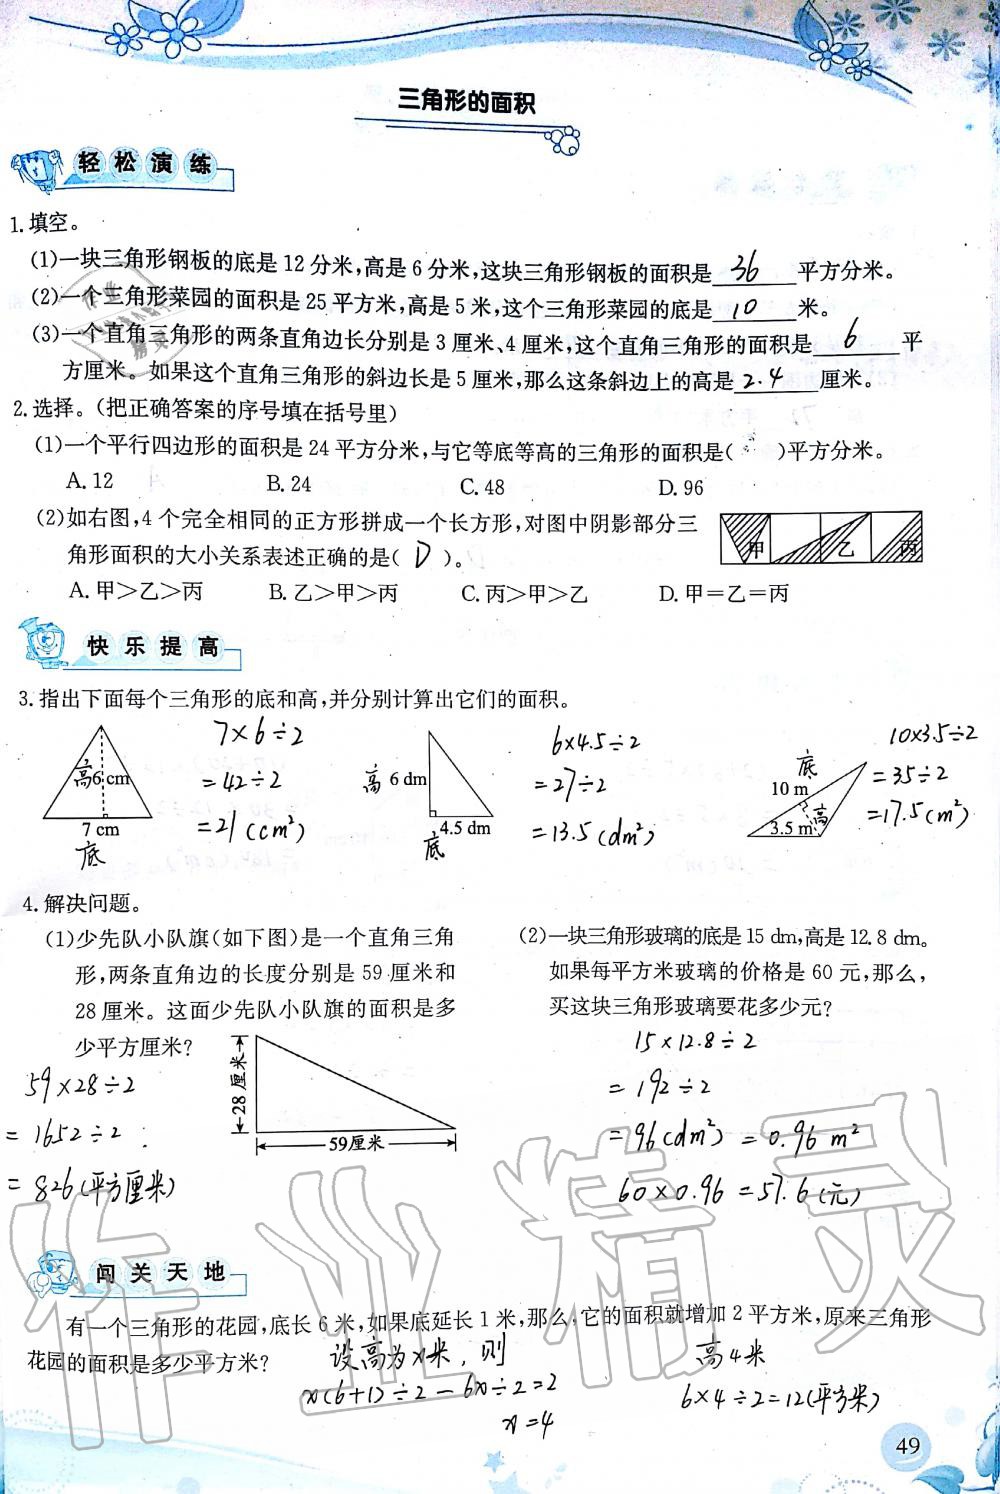 三角形的面积
轻松演练
1.填空。
(1)一块三角形钢板的底是12分米,高是6分米,这块三角形钢板的面积是 36 平方分米。
(2)一个三角形菜园的面积是25平方米,高是5米,这个三角形菜园的底是 10 米。
(3)一个直角三角形的两条直角边长分别是3厘米、4厘米,这个直角三角形的面积是 6 平
方厘米。如果这个直角三角形的斜边长是5厘米,那么这条斜边上的高是 2.4 厘米。
2.选择。(把正确答案的序号填在括号里)
(1)一个平行四边形的面积是24平方分米,与它等底等高的三角形的面积是( )平方分米。
A.12 B.24 C.48 D.96
(2)如右图,4个完全相同的正方形拼成一个长方形,对图中阴影部分三
角形面积的大小关系表述正确的是( D )。
甲 乙 丙
A.甲>乙>丙 B.乙>甲>丙 C.丙>甲>乙 D.甲=乙=丙
快乐提高
3.指出下面每个三角形的底和高,并分别计算出它们的面积。
高 6 cm
7 cm
底
7×6÷2
=42÷2
=21(cm²)
高 6 dm
4.5 dm
底
6×4.5÷2
=27÷2
=13.5(dm²)
底
10 m
高
3.5 m
10×3.5÷2
=35÷2
=17.5(m²)
4.解决问题。
(1)少先队小队旗(如下图)是一个直角三角
形,两条直角边的长度分别是59厘米和
28厘米。这面少先队小队旗的面积是多
少平方厘米?
28厘米
59厘米
59×28÷2
=1652÷2
=826(平方厘米)
(2)一块三角形玻璃的底是15 dm,高是12.8 dm。
如果每平方米玻璃的价格是60元,那么,
买这块三角形玻璃要花多少元?
15×12.8÷2
=192÷2
=96(dm²)=0.96 m²
60×0.96=57.6(元)
闯关天地
有一个三角形的花园,底长6米,如果底延长1米,那么,它的面积就增加2平方米,原来三角形
花园的面积是多少平方米?
设高为x米,则
x(6+1)÷2-6x÷2=2
x=4
高4米
6×4÷2=12(平方米)
49
作业精灵